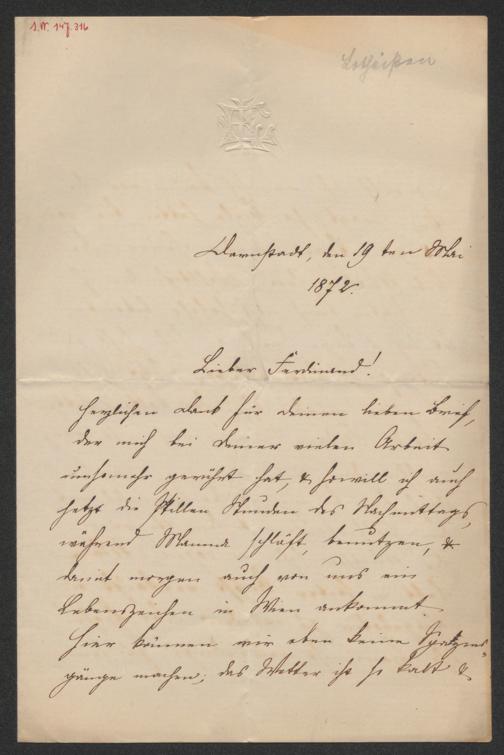 I.N. 147.316
Lotheißen
Darmstadt, den 19 ten Mai
1872.
Lieber Ferdinand!
Herzlichen Dank für Deinen lieben Brief,
der mich bei Deiner vielen Arbeit
umsomehr gerührt hat, & so will ich auch
jetzt die stillen Stunden des Nachmittags,
während Mama schläft, benutzen, &
damit morgen auch von uns ein
Lebenszeichen in Wien ankommt.
Hier können wir eben keine Spazier-
gänge machen; das Wetter ist so kalt &